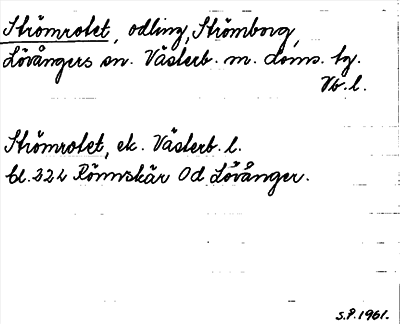 Strömrotet, odling, Strömborg,
Lövångers sn. Västerb. m. Löns. tg.
Vb. l.
Strömrotet, ek. Västerb. l.
bl. 324 Rönnskär Od Lövånger.
S.P. 1961.